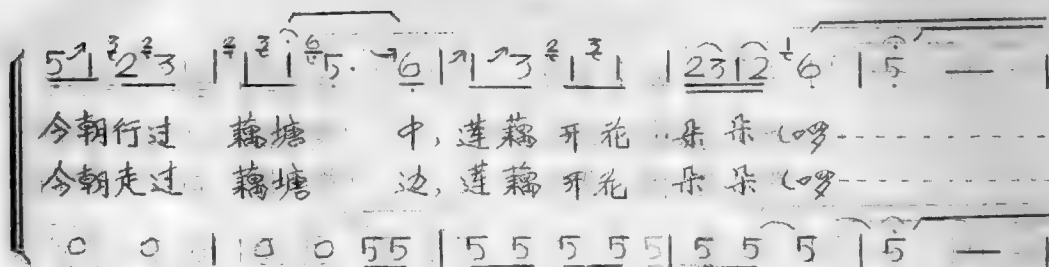 5 1 2 3 | 1 1 5. 6 | 1 3 1 1 | 2312 6 | 5 — |
今朝行过 藕塘 中，莲藕开花 朵朵(啰
今朝走过 藕塘 边，莲藕开花 朵朵(啰
0 0 | 0 0 55 | 5 5 5 5 5 | 5 5 5 | 5 — |